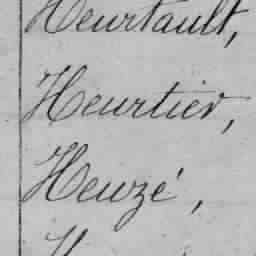 Heurtault,
Heurtier,
Heuzé,